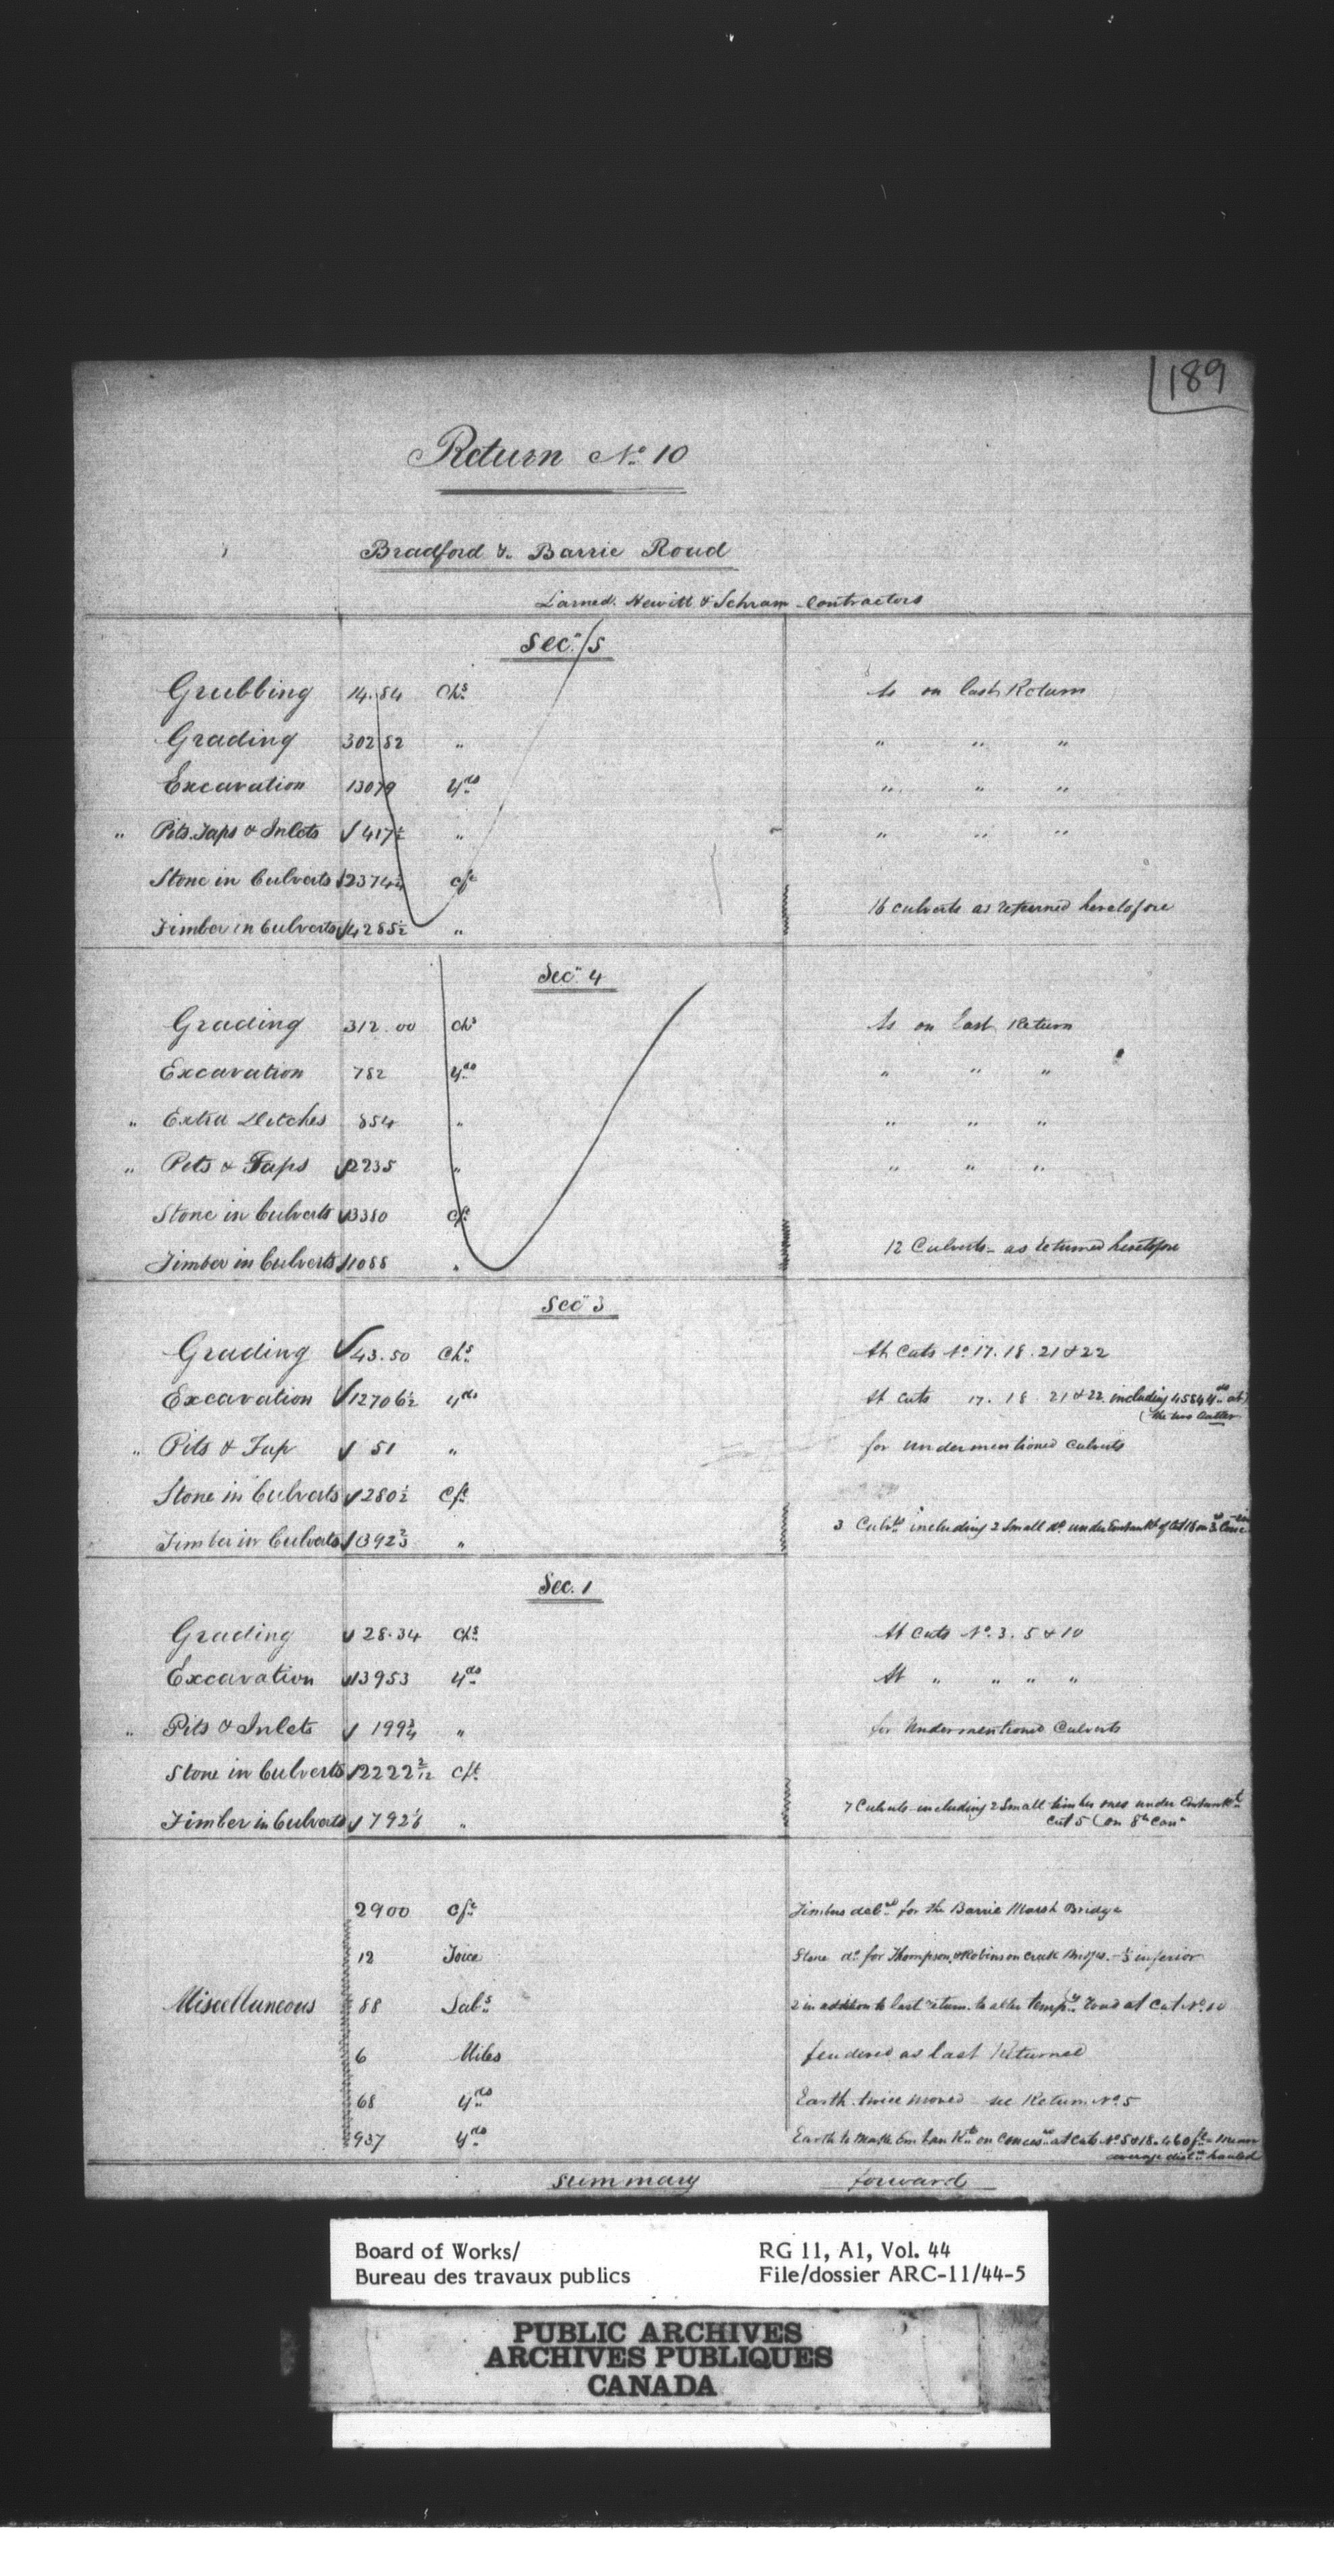 189
Return No. 10
Bradford & Barrie Road
Larned. Hewitt & Schram Contractors
Secn. 5
Grubbing 14.84 Chs. As on last Return
Grading 302 82 " " " "
Excavation 13079 Yds " " "
" Pits Taps & Inlets 417½ " " " "
Stone in Culverts cft
16 culverts as returned heretofore
Timber in Culverts 4285½ "
Secn. 4
Grading 312.00 Chs As on Last Return
Excavation 782 Yds " " "
" Extra Ditches 854 " " " "
" Pits & Taps 2235 " " " "
Stone in Culverts 3380 cft
12 Culverts - as returned heretofore
Timber in Culverts 1088 "
Secn 3
Grading 43.50 Chs. At Cuts No. 17. 18. 21 & 22
Excavation 12706½ Yds At cuts 17. 18. 21 & 22. including 4584 Yds. at
(the two latter
" Pits & Tap 51 " for undermentioned Culverts
Stone in Culverts 280½ Cft.
3 Culvts. including 2 Small do. under Embankt of Cut 18 on 3d Conc
Timber in Culverts 392⅔ "
Sec. 1
Grading 28.34 Chs. At Cuts No. 3. 5 & 10
Excavation 13953 Yds. At " " " "
" Pits & Inlets 199¾ " for Undermentioned Culverts
Stone in Culverts 2222 2/12 Cft.
7 Culverts including 2 Small timber ones under Embankt.
Cut 5 (on 8th Con
Timber in Culverts 792⅙ "
2900 Cft. Timber deld. for the Barrie Marsh Bridge
12 Toise Stone do. for Thompson & Robinson Creek Bridges - ⅓ inferior
Miscellaneous 88 Labs. 2 in addition to last return. to alter tempy. road at Cut No. 10
6 Miles as last Returned
68 Yds. Earth twice moved see Return No. 5
937 Yds. Earth to Make Embankts. on at Cuts No. 5 & 18. 460 ft. Mean
average distce. hauled
Summary forward
Board of Works/
Bureau des travaux publics
RG 11, A1, Vol. 44
File/dossier ARC-11/44-5
PUBLIC ARCHIVES
ARCHIVES PUBLIQUES
CANADA